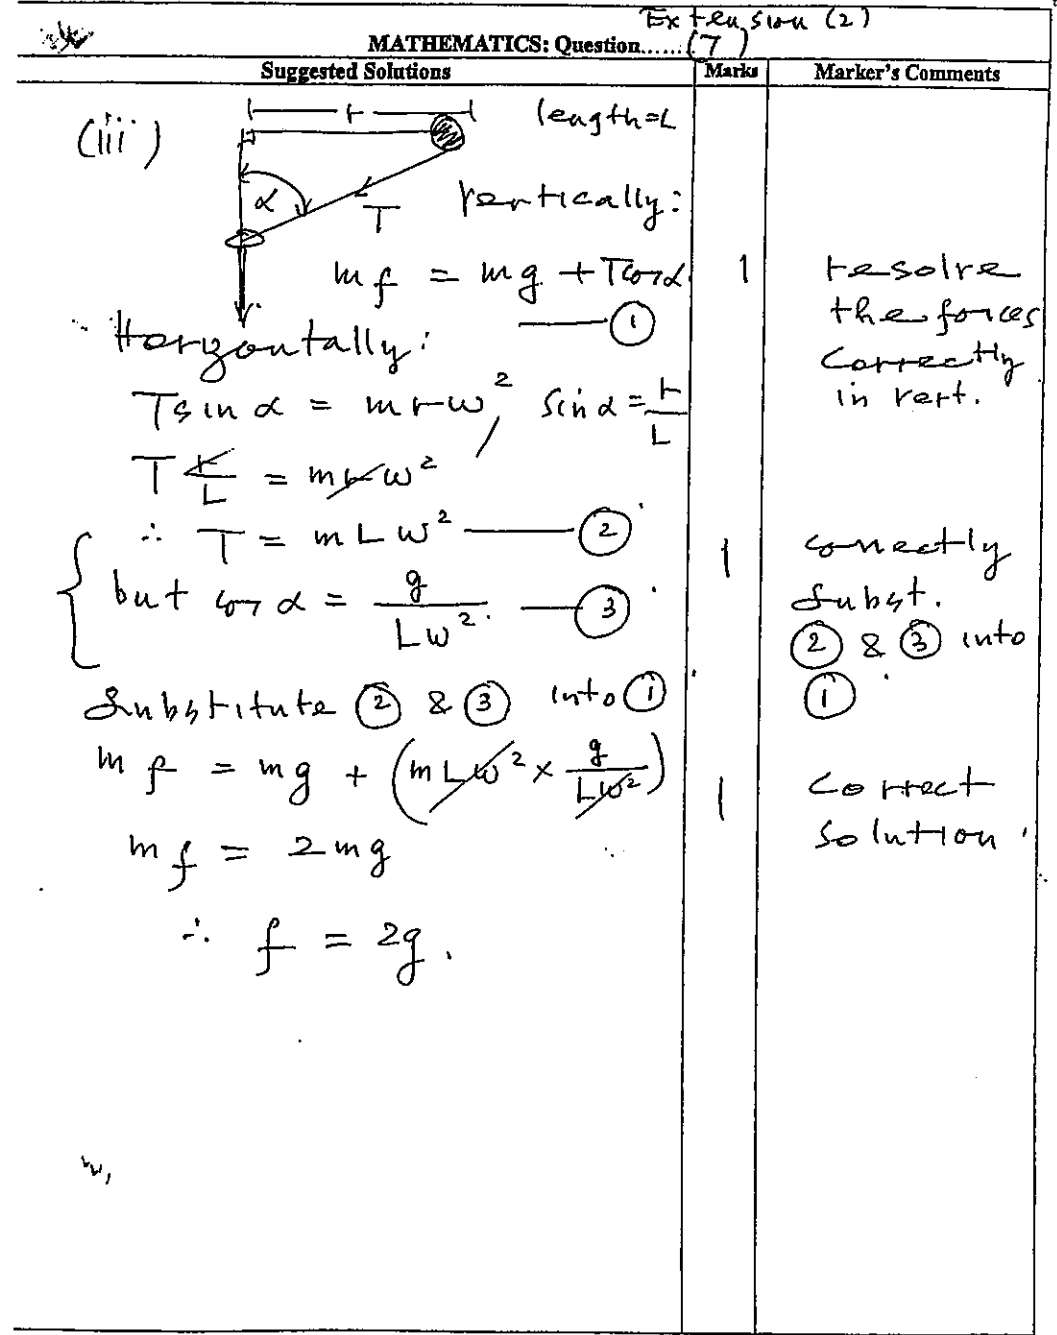 Extension (2)
MATHEMATICS: Question......(7)
Suggested Solutions
Marks
Marker's Comments
(iii)
r
length=L
α
T
Vertically:
mf = mg + Tcosα
1
resolve
the forces
correctly
in vert.
①
Horizontally:
Tsin α = mrω², sin α = r/L
T r/L = mrω²
∴ T = mLω² ②
but cos α = g/Lω². ③
1
correctly
subst.
② & ③ into
①
Substitute ② & ③ into ①
mf = mg + (mLω² × g/Lω²)
1
correct
solution.
mf = 2mg
∴ f = 2g.